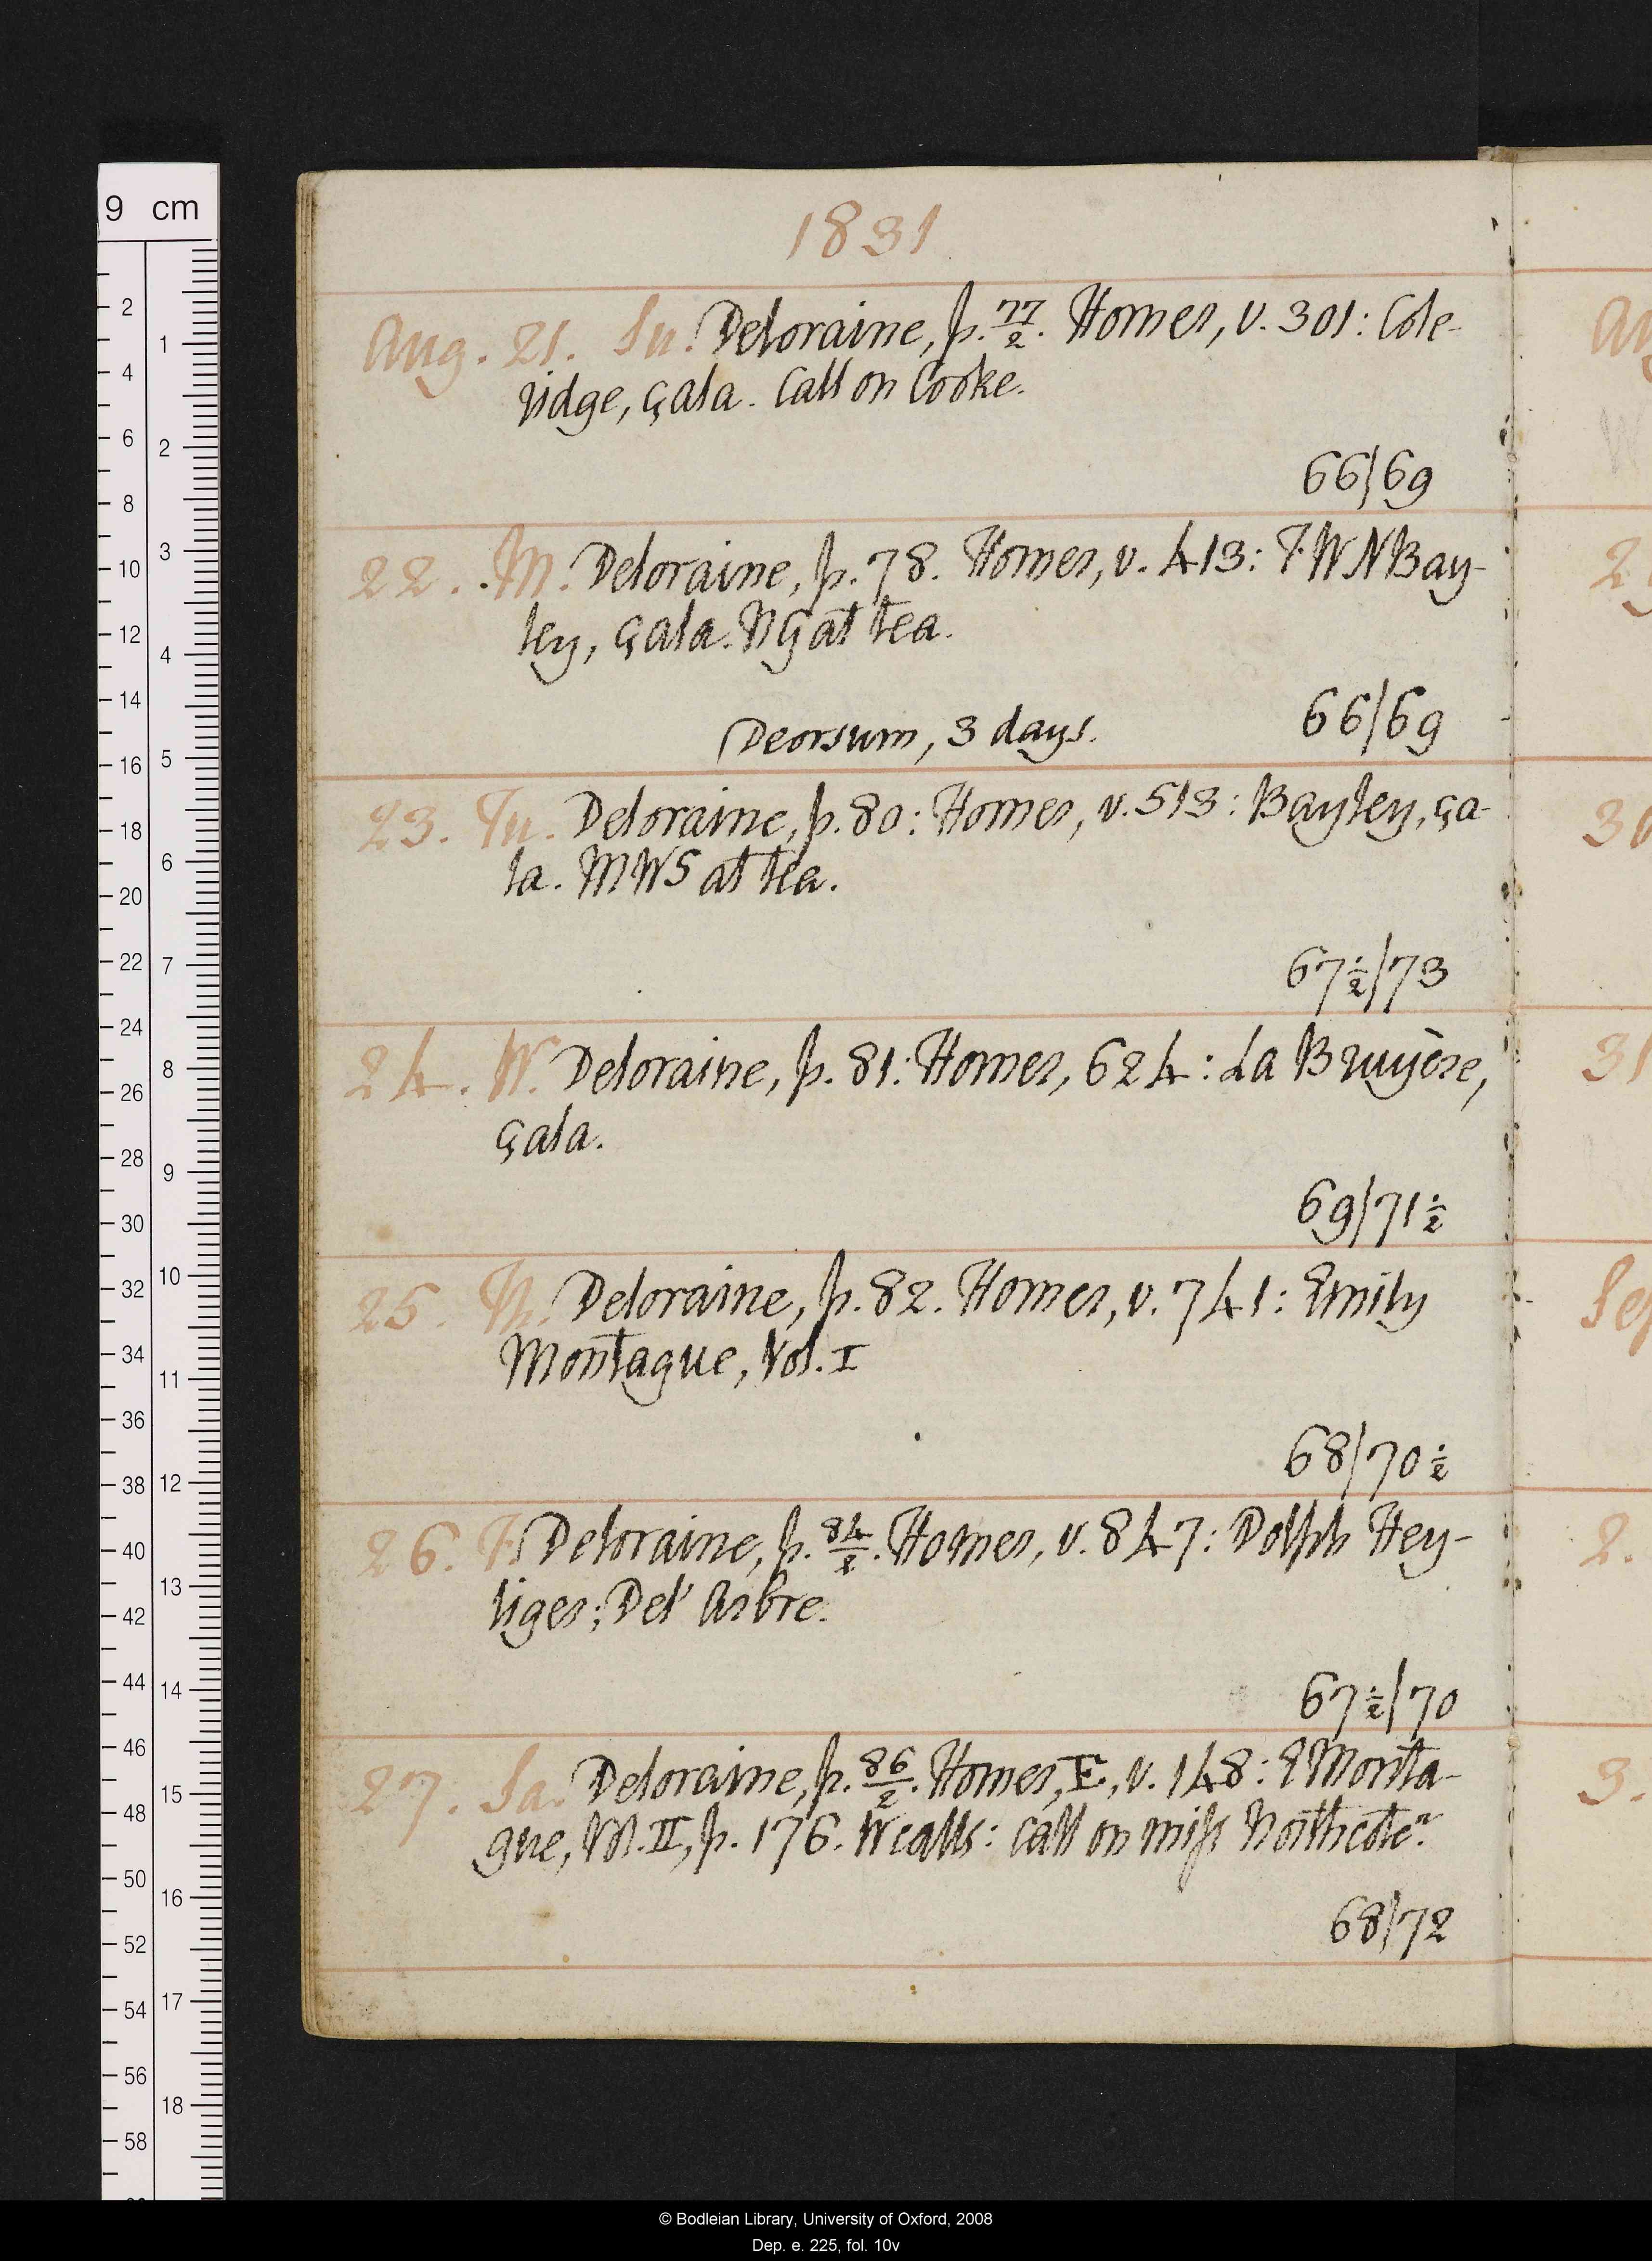 1831
Aug. 21. Su. Deloraine, p. 77/2. Homer, v. 301: Cole-
ridge, çala. Call on Cooke.
66/69
22. M. Deloraine, p. 78. Homer, v. 413: F W N Bay-
ley, çala. N G at tea.
Deorsum, 3 days. 66/69
23. Tu. Deloraine, p. 80: Homer, v. 513: Bayley, ça-
la. M W S at tea.
67½/73
24. W. Deloraine, p. 81: Homer, 624: La Bruyère,
çala.
69/71½
25. Th. Deloraine, p. 82. Homer, v. 741: Emily
Montague, Vol. I
68/70½
26. F. Deloraine, p. 84/2. Homer, v. 847: Dolph Hey-
liger; Del' Arbre.
67½/70
27. Sa. Deloraine, p. 86/2. Homer, E, v. 148: E Monta-
gue, Vol. II, p. 176. W calls: call on miss Northcote n
68/72
9 cm
2 4 6 8 10 12 14 16 18 20 22 24 26 28 30 32 34 36 38 40 42 44 46 48 50 52 54 56 58
1 2 3 4 5 6 7 8 9 10 11 12 13 14 15 16 17 18
© Bodleian Library, University of Oxford, 2008
Dep. e. 225, fol. 10v